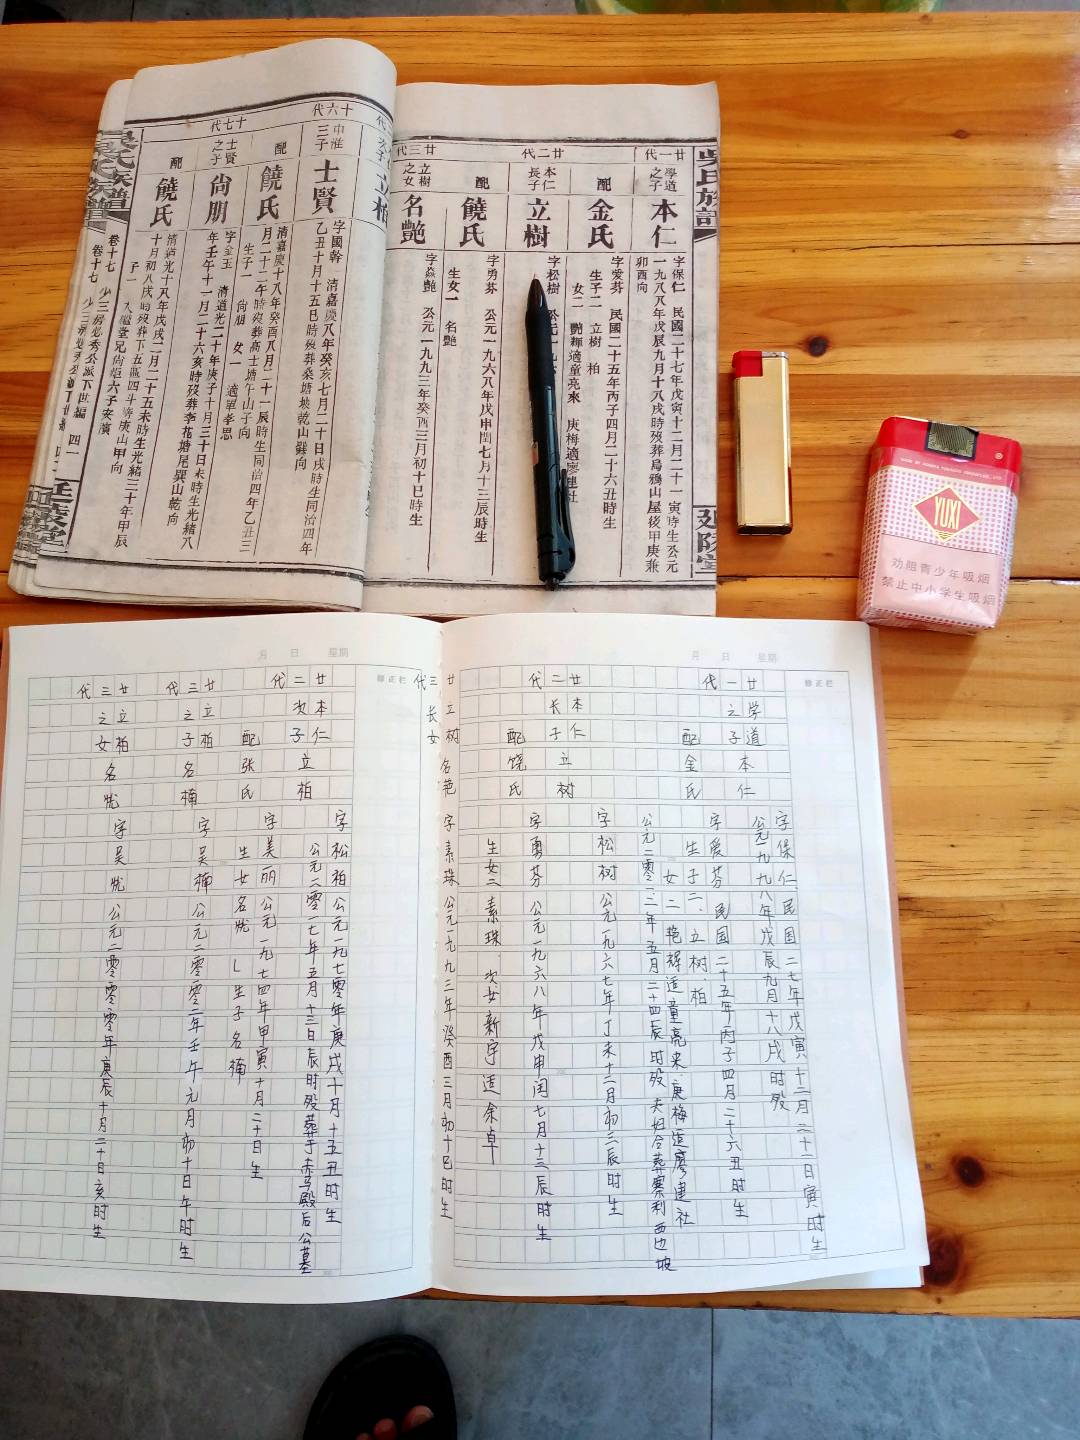 吳氏族譜
廿一代
學道之子
本仁
字保仁 民國二十七年戊寅十二月二十一寅時生公元
一九八八年戊辰九月十八戌時歿葬烏鴉山屋後甲庚兼
卯酉向
配
金氏
字愛芬 民國二十五年丙子四月二十六丑時生
生子二 立樹 柏
女二 艷輝適童亮來 庚梅適廖建社
廿二代
本仁長子
立樹
字松樹 公元一九六
配
饒氏
字勇芬 公元一九六八年戊申閏七月十三辰時生
生女一 名艷
廿三代
立樹之女
名艷
字焱艷 公元一九九三年癸酉三月初十巳時生
立柏
十六代
中淮三子
士賢
字國幹 清嘉慶八年癸亥七月二十日戌時生同治四年
乙丑十月十五巳時歿葬桑塘坡乾山巽向
配
饒氏
清嘉慶十八年癸酉八月二十一辰時生同治四年乙丑三
月二十二午時歿葬高士塘午山子向
生子一 尙朋 女一 適單孝思
十七代
士賢之子
尙朋
字金玉 清道光二十年庚子十月三十日未時生光緒八
年壬午十一月二十六亥時歿葬李花塘尾巽山乾向
配
饒氏
清道光十八年戊戌二月二十五未時生光緒三十年甲辰
十月初八戌時歿葬下五區四斗嵜庚山甲向
吳氏族譜
卷十七
YUXI
劝阻青少年吸烟
禁止中小学生吸烟
月 日 星期
修正栏
廿一代
学道之子
本仁
字保仁、民国二七年戊寅十二月二十一日寅时生
公元一九九八年戊辰九月十八戌时殁
配
金氏
字爱芬 民国二十五年丙子四月二十六丑时生
生子二、立树柏
女二 艳辉适童亮来、庚梅适廖建社
公元二零二二年五月二十四辰时殁 夫妇合葬寨利西边坡
廿二代
本仁长子
立树
字松树 公元一九六七年丁未十二月初三辰时生
配
饶氏
字勇芬 公元一九六八年戊申闰七月十三辰时生
生女二 素珠 次女新宇适余卓
廿三代
立树长女
名艳
字素珠 公元一九九三年癸酉三月初十巳时生
月 日 星期
修正栏
廿二代
本仁次子
立柏
字松柏 公元一九七零年庚戌十月十五丑时生
公元二零一七年五月十三日辰时殁葬于赤马殿后公墓
配
张氏
字美丽 公元一九七四年甲寅十月二十日生
生女名悦 生子名楠
廿三代
立柏之子
名楠
字吴楠 公元二零零二年壬午元月初十日午时生
廿三代
立柏之女
名悦
字吴悦 公元二零零零年庚辰十月二十日亥时生